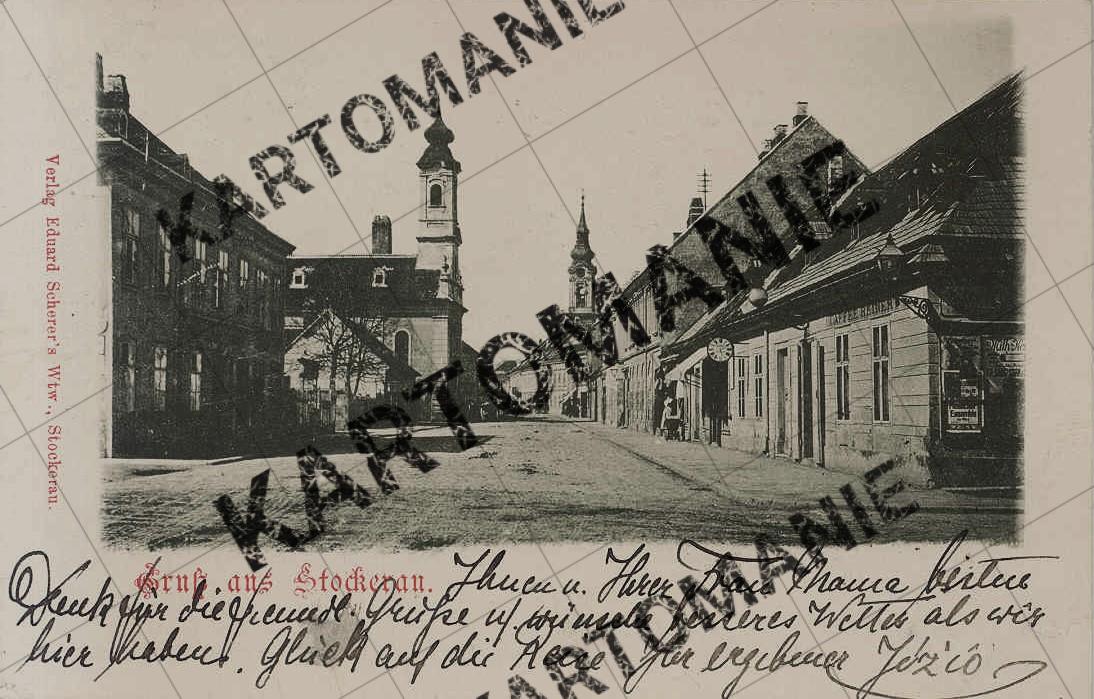 Verlag Eduard Scherer's Wtw., Stockerau.
KARTOMANIE
KARTOMANIE
KARTOMANIE
KARTOMANIE
KARTOMANIE
KAFFEE
Gruß aus Stockerau.
Ihnen u. Ihrer Frau Mama besten
Dank für die freundl. Grüße u. wünsche besseres Wetter als wir
hier haben. Glück auf die Reise Ihr ergebener Józio